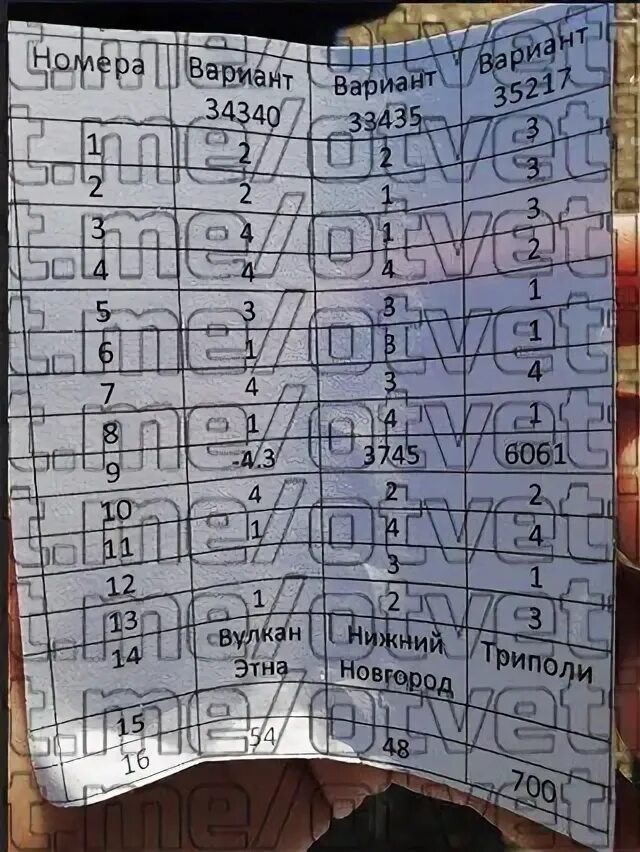 t.me/otvet
Номера Вариант 34340 Вариант 33435 Вариант 35217
t.me/otvet
1 2 2 3
2 2 1 3
t.me/otvet
3 4 1 3
4 4 4 2
t.me/otvet
5 3 3 1
6 1 3 1
7 4 3 4
t.me/otvet
8 1 4 1
9 -4.3 3745 6061
t.me/otvet
10 4 2 2
11 1 4 4
12 3 1
t.me/otvet
13 1 2 3
14 Вулкан Этна Нижний Новгород Триполи
t.me/otvet
15
16 54 48 700
t.me/otvet